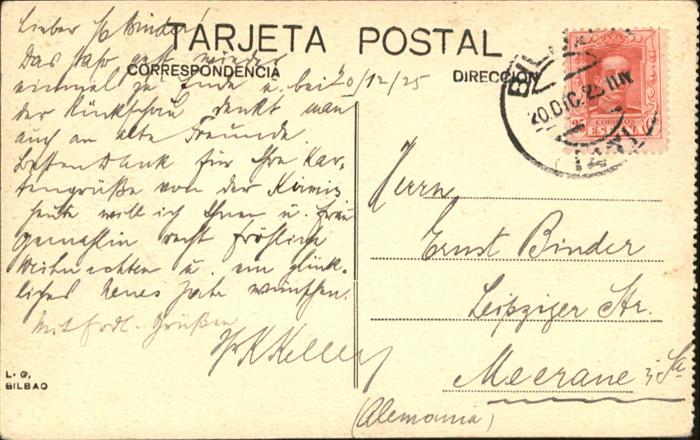 TARJETA POSTAL
CORRESPONDENCIA
DIRECCIÓN
20/12/25
Lieber Binder!
Das Jahr geht wieder
einmal zu Ende u. bei
der Rückschau denkt man
auch an alte Freunde.
Besten Dank für Ihre Kar-
tengrüße von der
Heute will ich Ihnen u. Frau
Gemahlin recht fröhliche
Weihnachten u. ein glück-
liches neues Jahr wünschen.
Mit frdl. Grüßen
Kelley
L. G.
BILBAO
BILBAO
20.DIC.25
CORREOS
ESPAÑA
Herrn
Ernst Binder
Leipziger Str.
Meerane i/Sa
(Alemania)